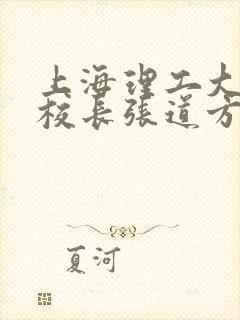 上海理工大
校长张道方
夏河